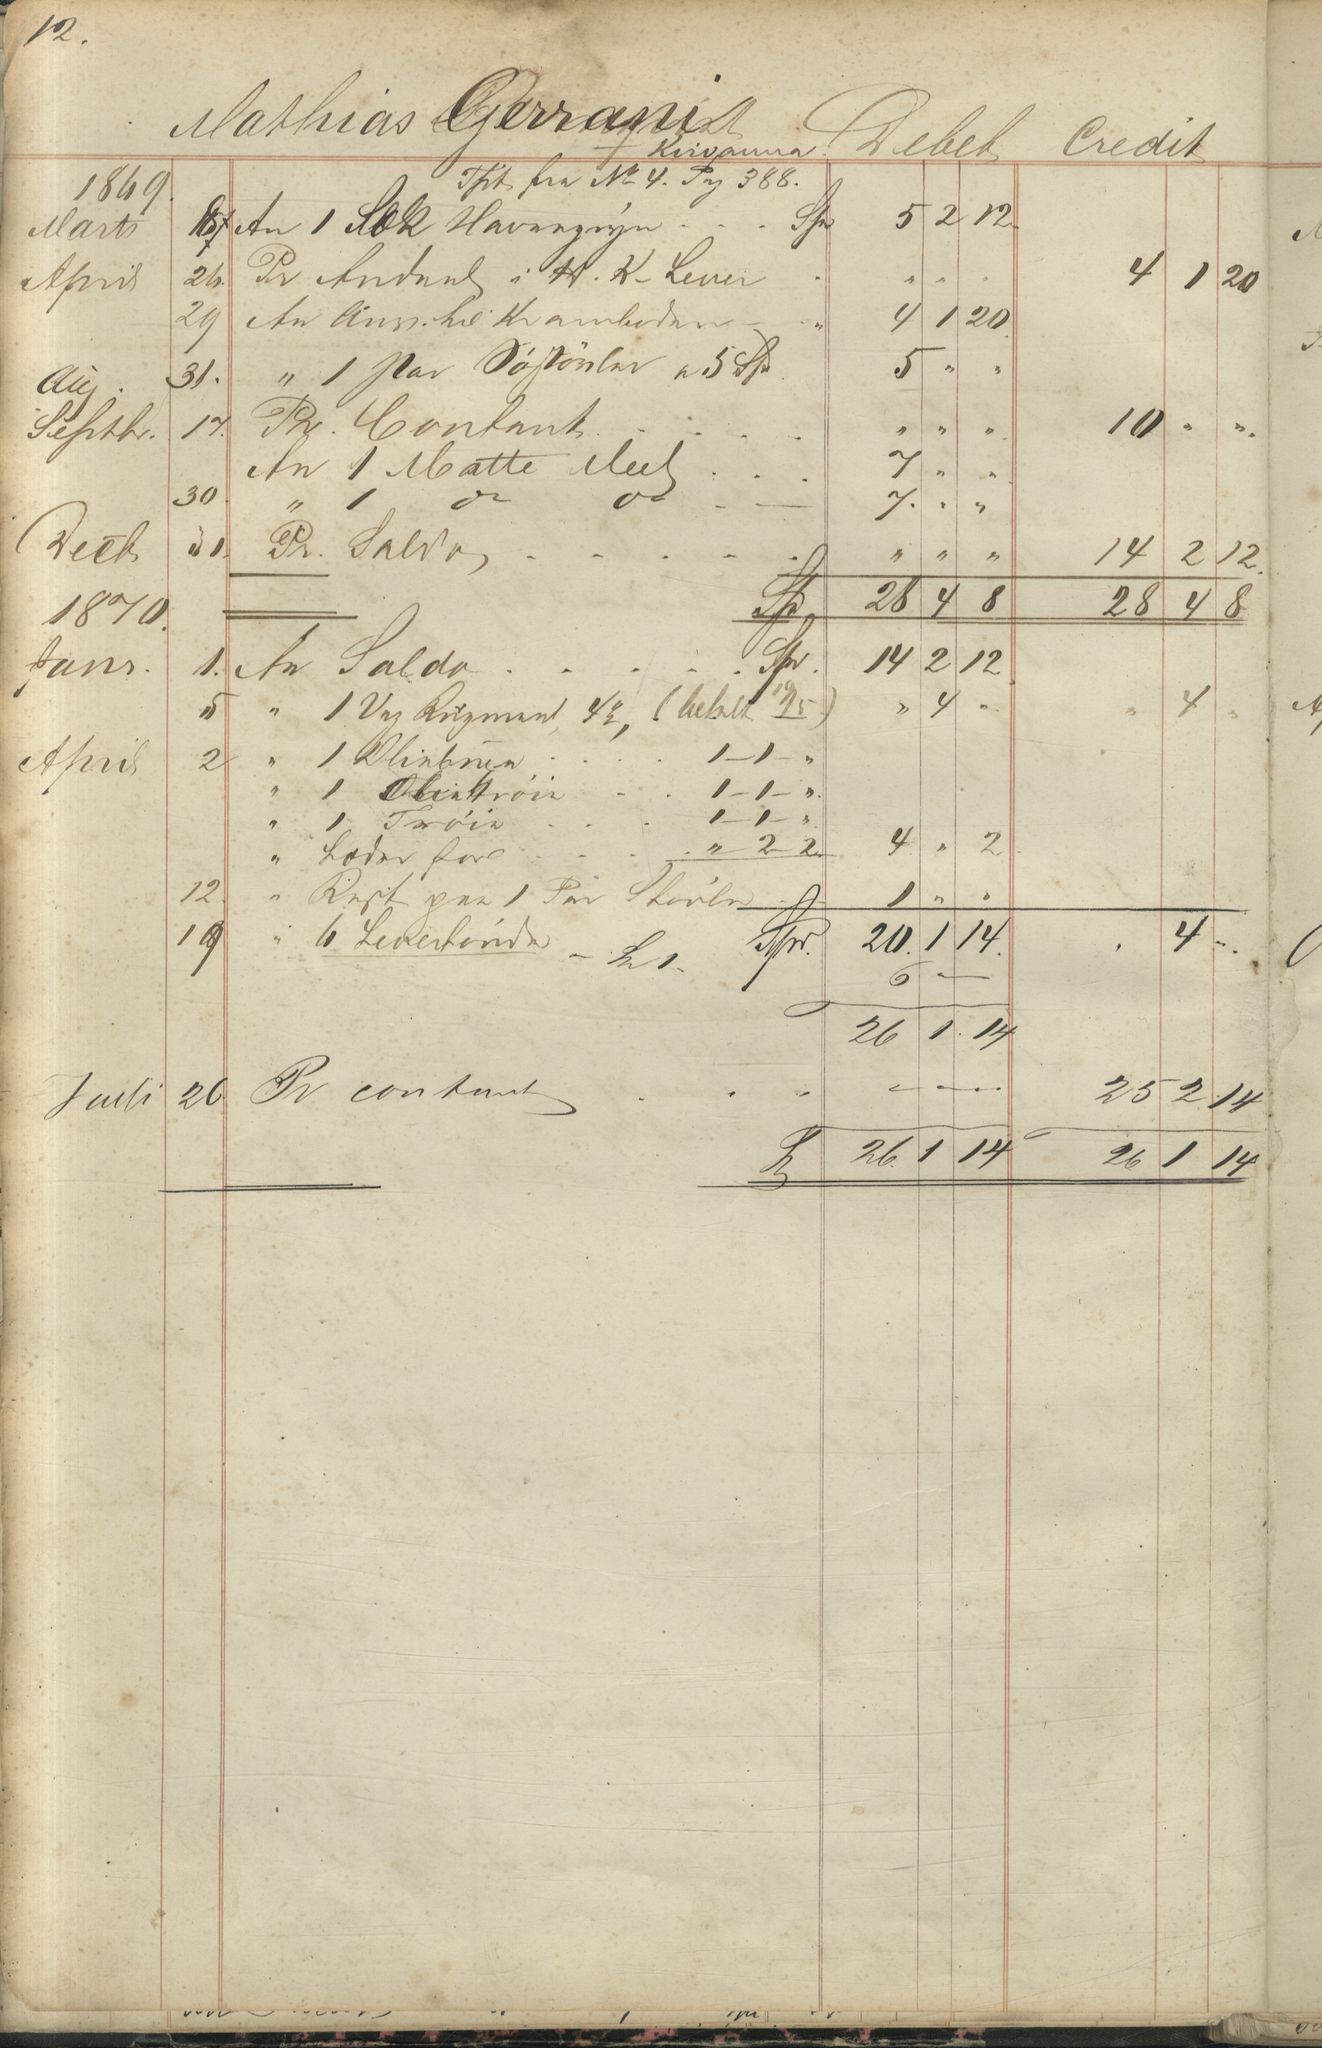 12.
Mathias Gerranist Debet Credit
Kirvanna
1869. Tpt fra No 4. Pag 388.
Marts 15/7 An 1 Sæk Havregryn . . . Spr 5 2 12.
April 26. Pr Andeel i H. K. Lever . " " . 4 1 20
29 An Anv. til Kramboden " 4 1 20
Aug. 31. " 1 par Söstövler a 5 Spd. 5 " "
Septbr. 17. Pr. Contant . . . . " " " 10 " ".
An 1 Matte Meel . . . 7 " "
30. " 1 do do . — 7. " "
Decb 31. Pr. Saldo . . . . . " " " 14 2 12.
Spd 28 4 8 28 4 8
1870.
Janr. 1. An Saldo . . . . . Spr. 14 2 12
5 " 1 Vog Rugmeel, 4 , (betalt 19/5) " 4 " " 4 "
April 2 " 1 Oliebuxe . . . . 1–1–"
" 1 Olietröie . . . 1–1–".
" 1 Tröie . . . 1–1–".
" Læder for . . . " 2 2 4 " 2.
12. " Rest paa 1 Par Stövler 1 " "
19 " 6 Levertönder – Sp 1. Spr. 20. 1 14. . 4 ".
6 —
26 1. 14
Juli 26 Pr contant . . . — — — 25 2. 14
Sp 26. 1 14 26 1 14